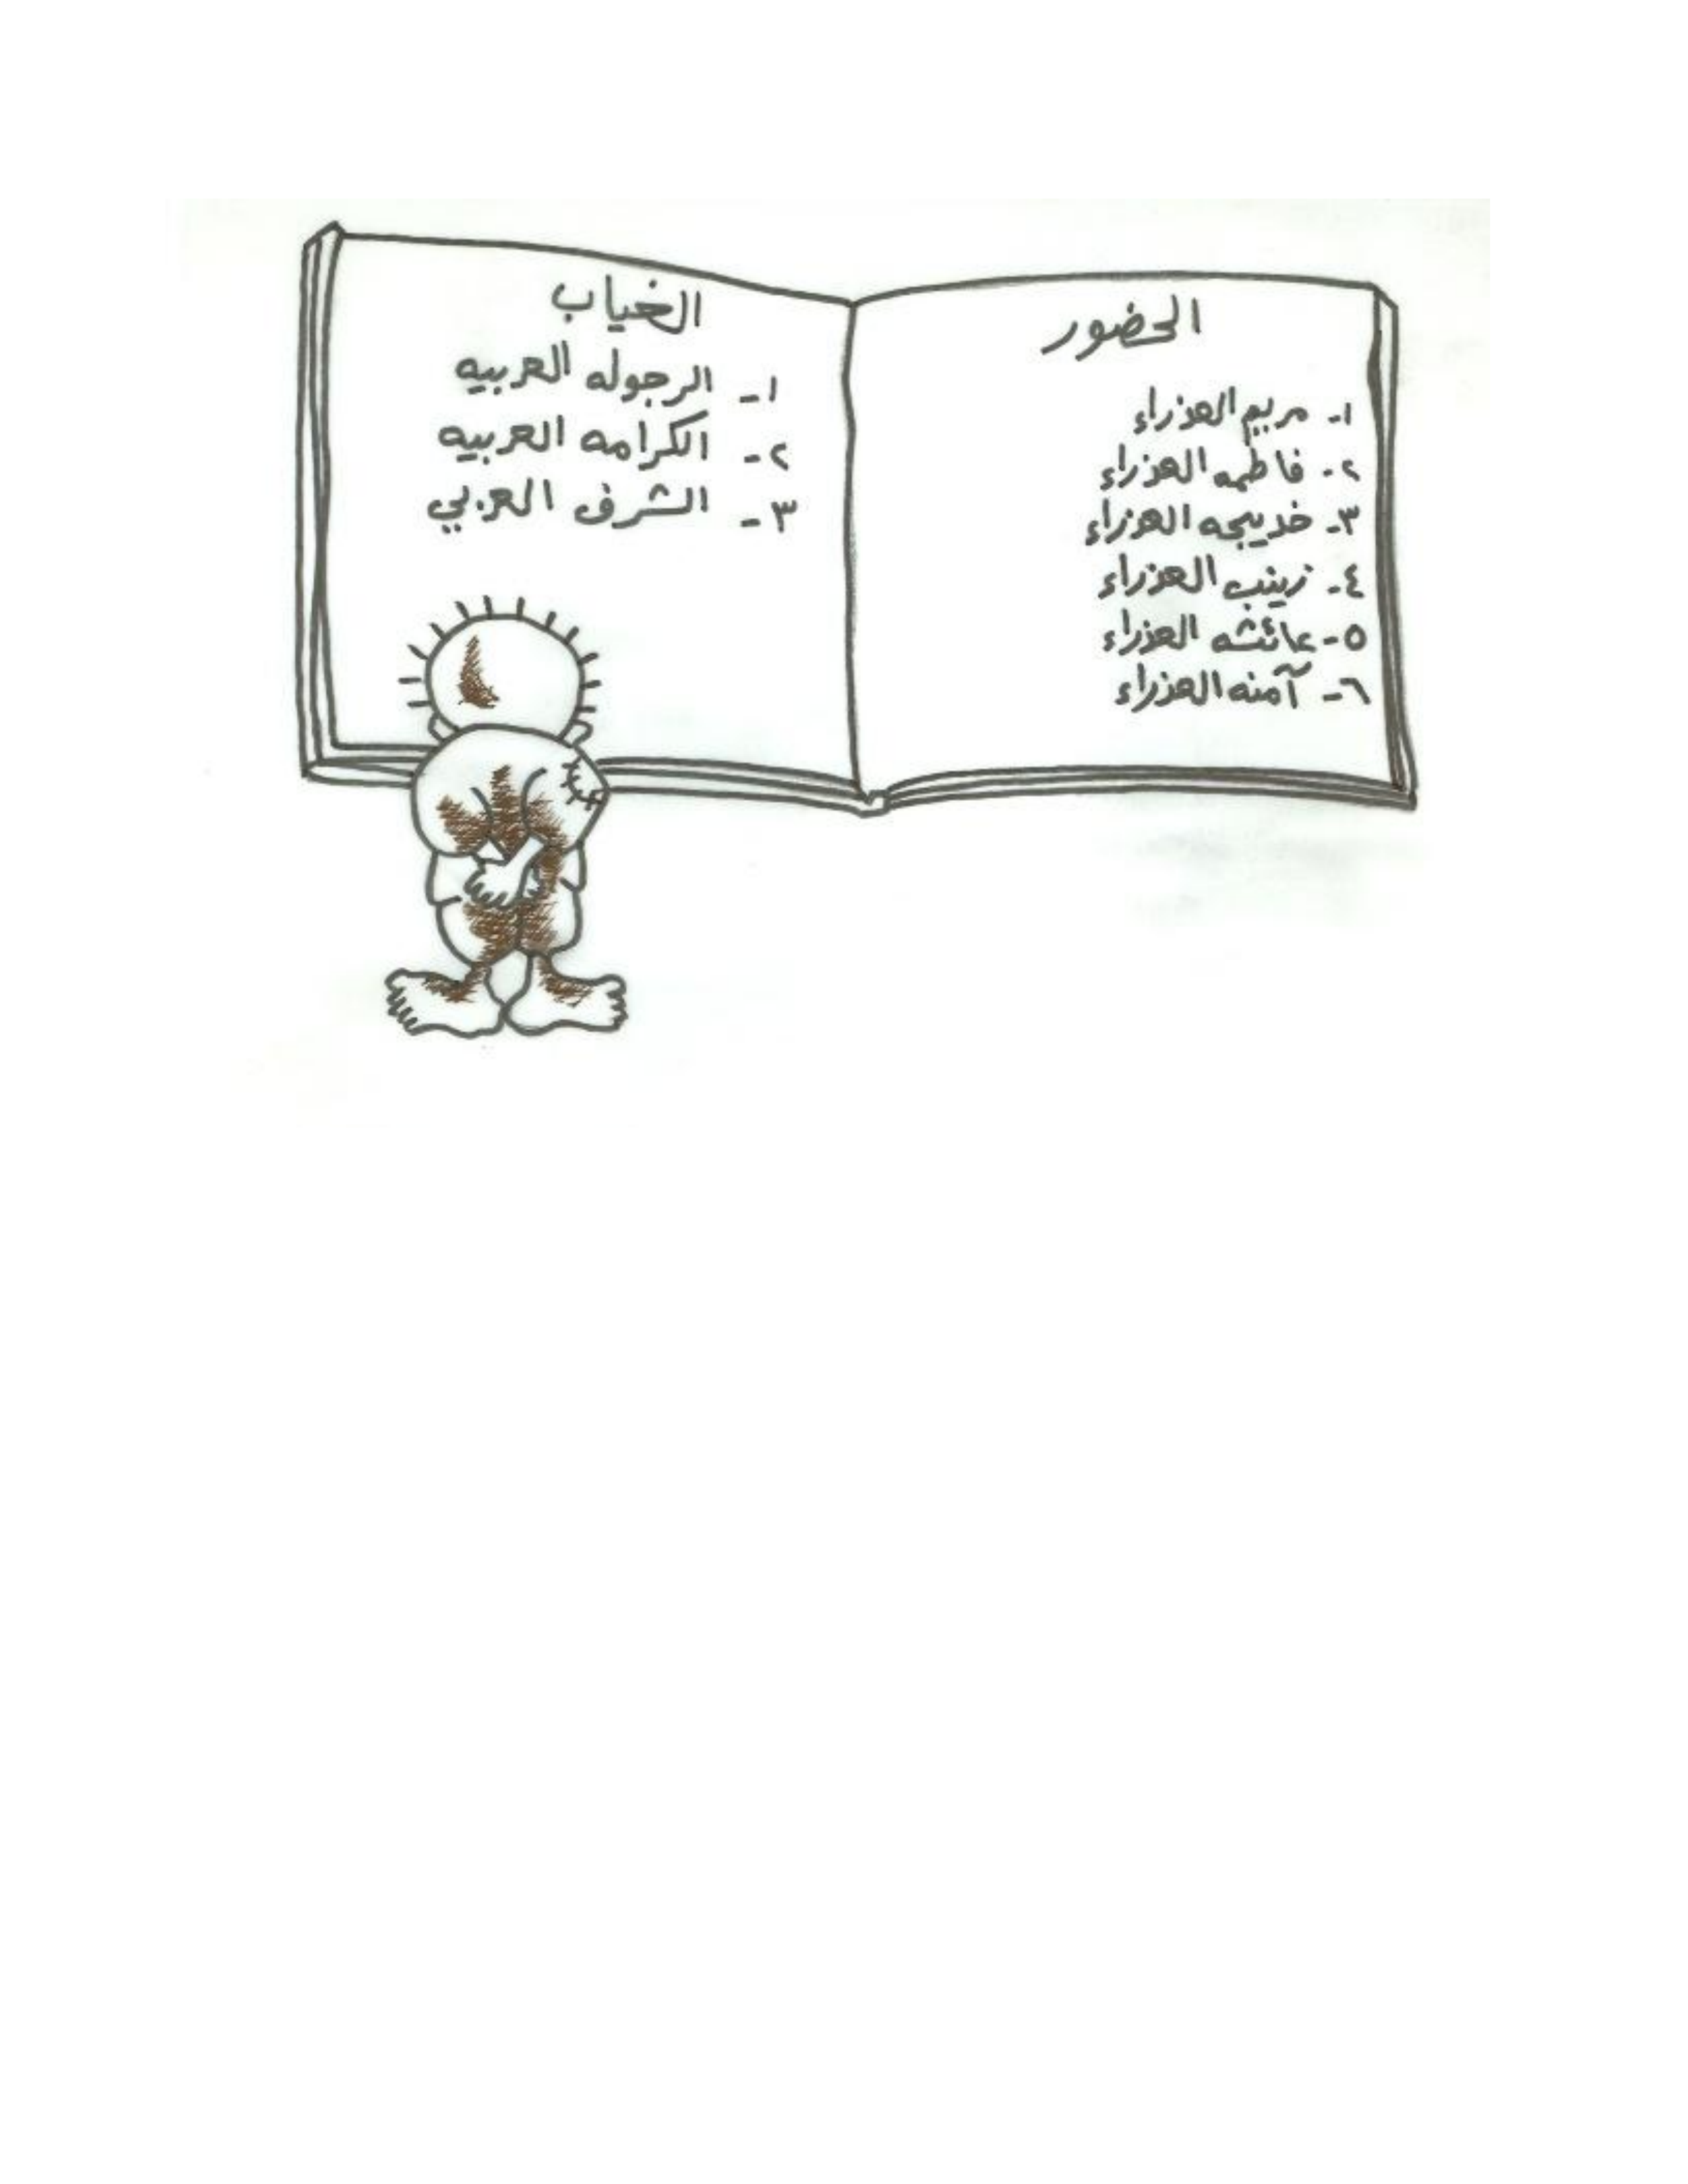 الحضور
١- مريم العذراء
٢- فاطمه العذراء
٣- خديجه العذراء
٤- زينب العذراء
٥- عائشه العذراء
٦- آمنه العذراء
الغياب
١- الرجوله العربيه
٢- الكرامه العربيه
٣- الشرف العربي